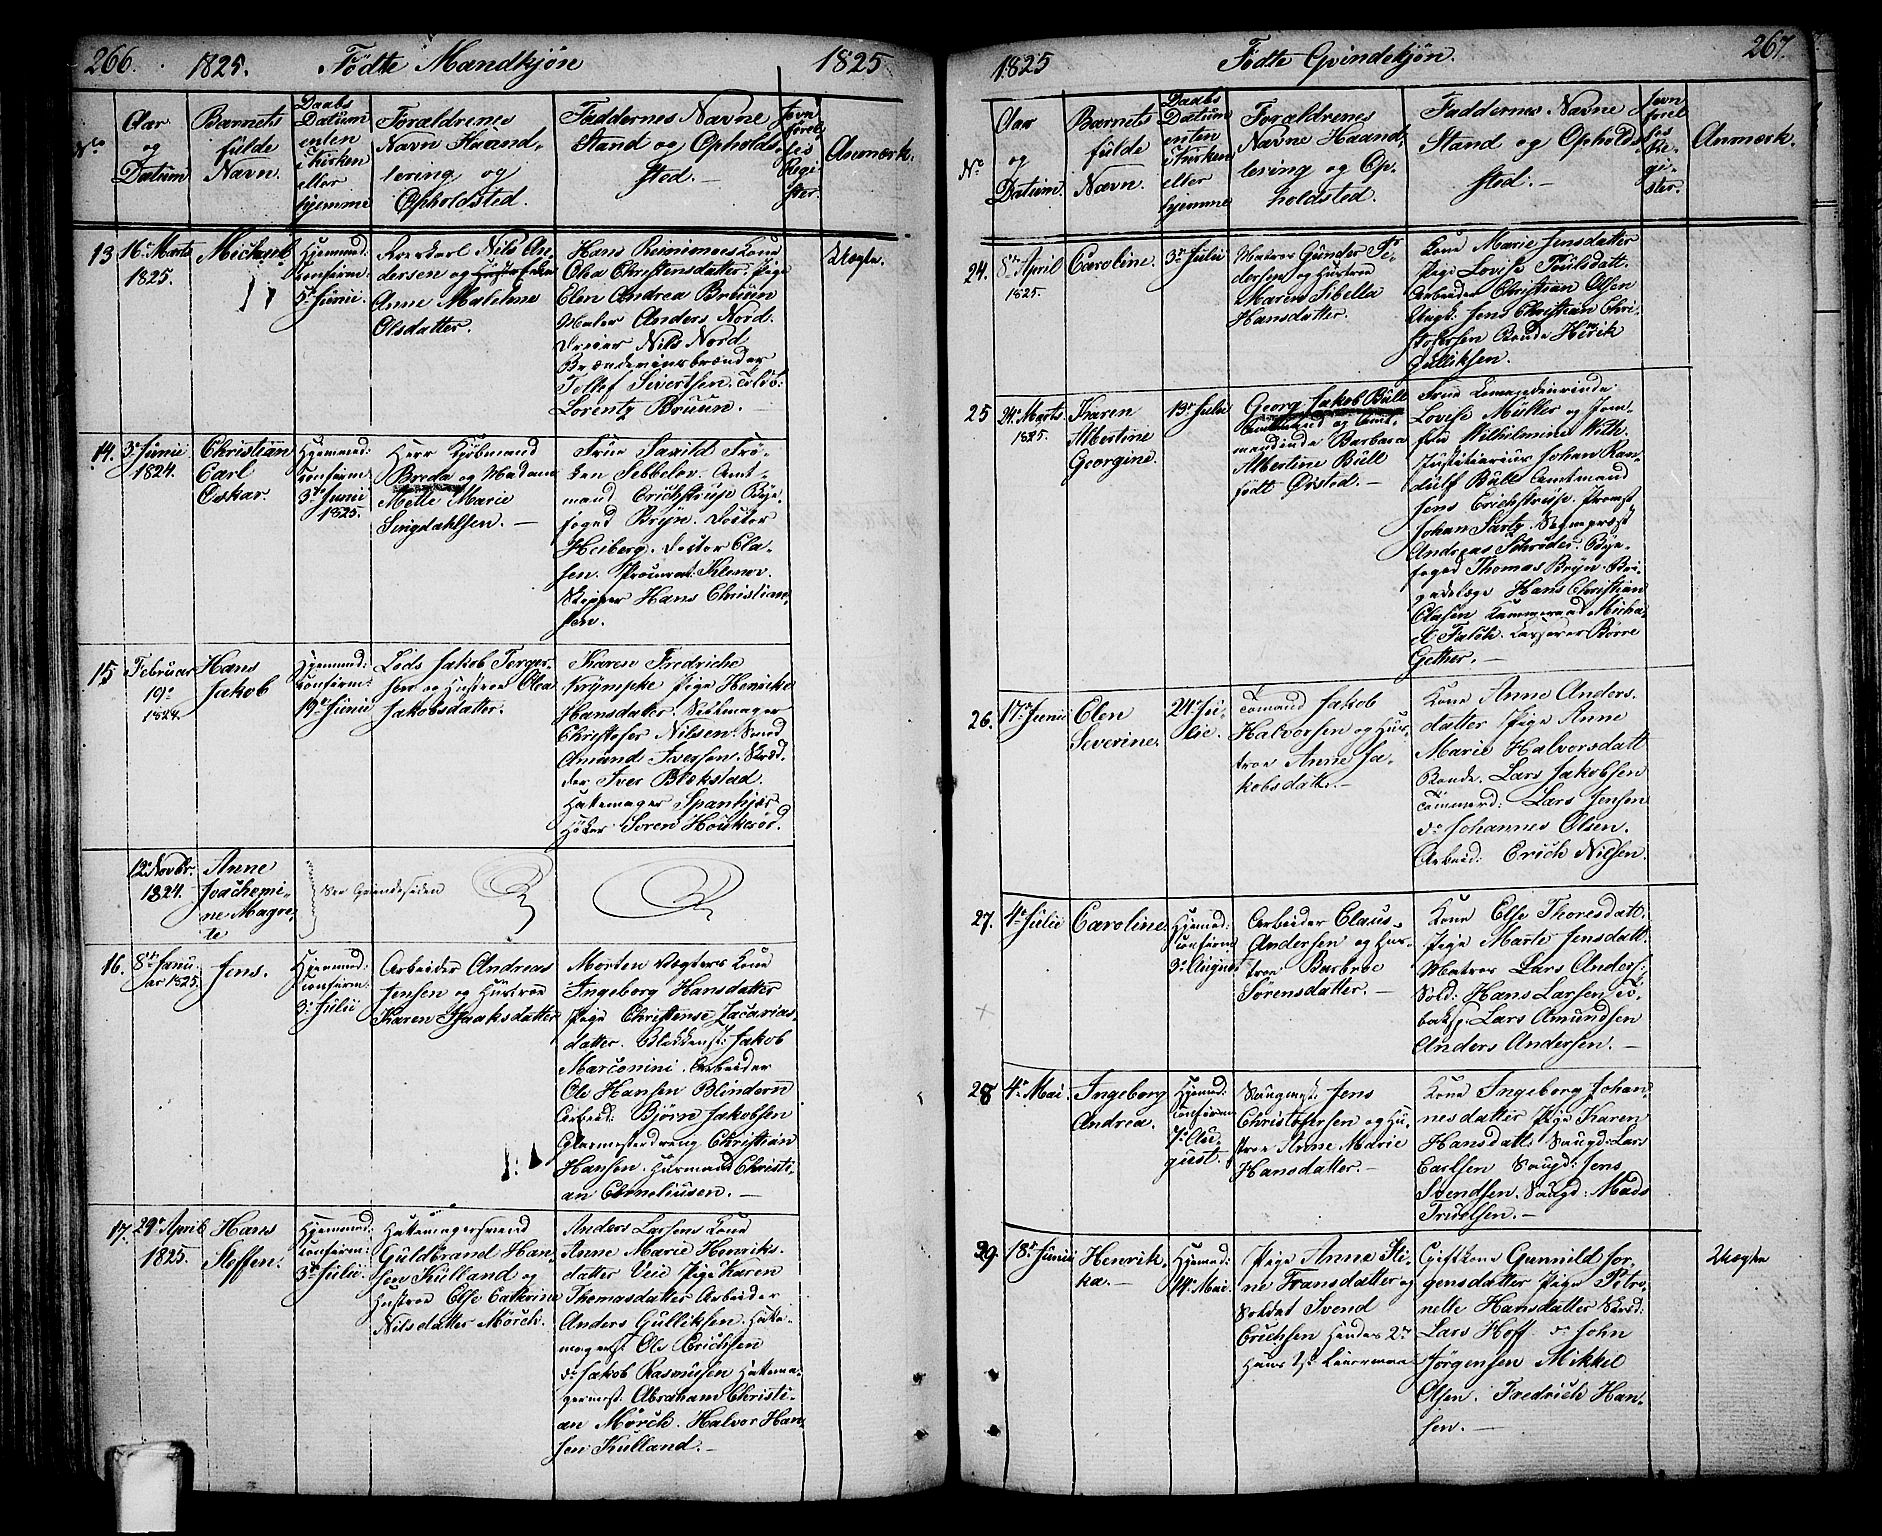 266. 1825. Födte Mandkjön 1825
No
Aar
og
Datum
Barnets
fulde
Navn.
Daabs
Datum
enten
i Kirken
eller
hjemme
Forældrenes
Navn Haand-
tering og
Opholdsted.
Faddernes Navne
Stand og Opholds-
sted. —
Jevn
förel
ses
Regi
ster.
Anmærk.
13
16de Marts
1825.
Michael
Hjemmed:
Confirm:
5te Junii.
Nils An-
dersen og
Anne Malehne
Olsdatter.
Hans Kone
Oka Christensdatter. Pige
Elen Andrea Bruun
Anders Nord.
Nils Nord
Brændevinsbrænder
Tollef Sivertsen.
Lorentz Bruun. —
Uægte.
14.
3de Junii
1824.
Christian
Carl
Oskar.
Hjemmed:
Confirm:
3de Junii
1825.
Herr Kjöbmand
Breda og Madame
Melle Marie
Singdahlsen. —
Frue Frö-
ken Sebbelov. Amt-
mand Erichstrup Bye-
foged Bryn. Doctor
Heiberg. Doctor Cla-
sen. Procurat: Klenov.
Skipper Hans Christian-
sen.
15
Februar
19de
1824.
Hans
Jakob
Hjemmed:
Confirm:
19de Junii
Lods Jakob Torger-
sen og Hustroe Olea
Jakobsdatter.
Karen Fredriche
Krympke Pige Henrike
Hansdatter.
Christofer Nilsen
Amund Iversen. Skræd-
der Iver Blekstad.
Hattemager Spanhjær
Höker Soren Houkeröd.
12te Novbr.
1824.
Anne
Joachemi-
ne Magre-
te
See Qvindesiden
16.
8de Janu-
ar 1825.
Jens.
Hjemmed:
Confirm:
3de Julii
Arbeider Andreas
Jensen og Hustroe
Karen Isaaksdatter
Morten Vogters Kone
Ingeborg Hansdatter
Pige Christense Zacarias
datter. Jakob
Marconini. Arbeider
Ole Hansen Blindern
Arbeid: Björn Jakobsen
Glarmesterdreng Christian
Hansen. Huusmand Christi-
an Corneliusen. —
17.
29de April
1825.
Hans
Steffen.
Hjemmed:
Confirm:
3de Julii
Hattemagersvend
Guldbrand Han-
sen Kulland og
Hustroe Else Cathrine
Nilsdatter Mörch.
Anders Larsens Kone
Anne Marie Henriks-
datter Veie Pige Karen
Thomasdatter Arbeider
Anders Gulliksen. Hatte-
magers: Ole Erichsen
do Jakob Rasmusen Hattema-
germest: Abraham Christi-
an Mörch. Halvor Han-
sen Kulland. —
1825 Födte Qvindekjön. 267.
No
Aar
og
Datum.
Barnets
fulde
Navn.
Daabs
Datum
enten
i Kirken
eller
hjemme
Forældrenes
Navne Haand-
tering og Op-
holdsted.
Faddernes Navne
Stand og Opholds
sted. —
Jevn
förel
ses
Re-
gi-
ster.
Anmerk.
24.
8de April
1825.
Caroline.
3de Julii
Matros Gunder Pe-
dersen og Hustroe
Maren Sibella
Hansdatter.
Kone Marie Jensdatter
Pige Lovise Poulsdatt.
Arbeider Christian Olsen
Jens Christian Chri-
stofersen Bonde Henrik
Gulliksen.
25
24de Marts
1825.
Karen
Albertine
Georgine.
19de Julii
Georg Jakob Bull
Amtmand og Amt-
mandinde Barbara
Albertine Bull
födt Örsted. —
Frue
Lovise Müller og Jom-
fru Wilhelmine With.
Justitiarius Johan Ran-
dulf Bull Amtmand
Jens Erichstrup. Provst
Johan Sartz. Sognepræst
Andreas Schröder. Bye-
foged Thomas Bryn Bri-
gadelæge Hans Christian
Clasen Kammerraad Micha-
el Falck. Kasserer Börre
Gether. —
26.
17de Junii
Elen
Severine.
24de Ju-
lie.
Tömand Jakob
Halvorsen og Hus-
troe Anne Ja-
kobsdatter. —
Kone Anne Anders-
datter Pige Anne
Marie Halvorsdatt
Bonde. Lars Jakobsen
Tömmerd: Lars Jensen
do Johannes Olsen.
Arbeid: Erich Nilsen.
27.
4de Julii
Caroline.
Hjemmed:
Confirm
3de August
Arbeider Claus
Andersen og Hus-
troe Barbroe
Sörensdatter. —
Kone Else Thoresdatt.
Pige Marte Jensdatt.
Matros Lars Anders:
Sold: Hans Larsen To-
baksp: Lars Amundsen
Anders Andersen. —
28
4de Mai.
Ingeborg
Andrea.
Hjemmed:
Confirm:
7de Au-
gust.
Saugmest: Jens
Christofersen og Hu-
stroe Anne Marie
Hansdatter. —
Kone Ingeborg Johan-
nesdatter Pige Karen
Hansdatt: Saugd: Lars
Carlsen Saugd: Jens
Svendsen. Saugd: Mads
Truelsen. —
29.
18de Junii
Henrik-
ka. —
Hjemmed:
14de Mai.
Pige Anne Sti-
ne Fransdatter og
Soldat Svend
Erichsen Hendes 2det
Hans 1ste Leiermaal
Giftkone Gunnild Jor-
gensdatter Pige Petro-
nelle Hansdatter Skræd:
Lars Hoff. do John
Jörgensen Mikkel
Olsen. Fredrich Han-
sen.
Uægte